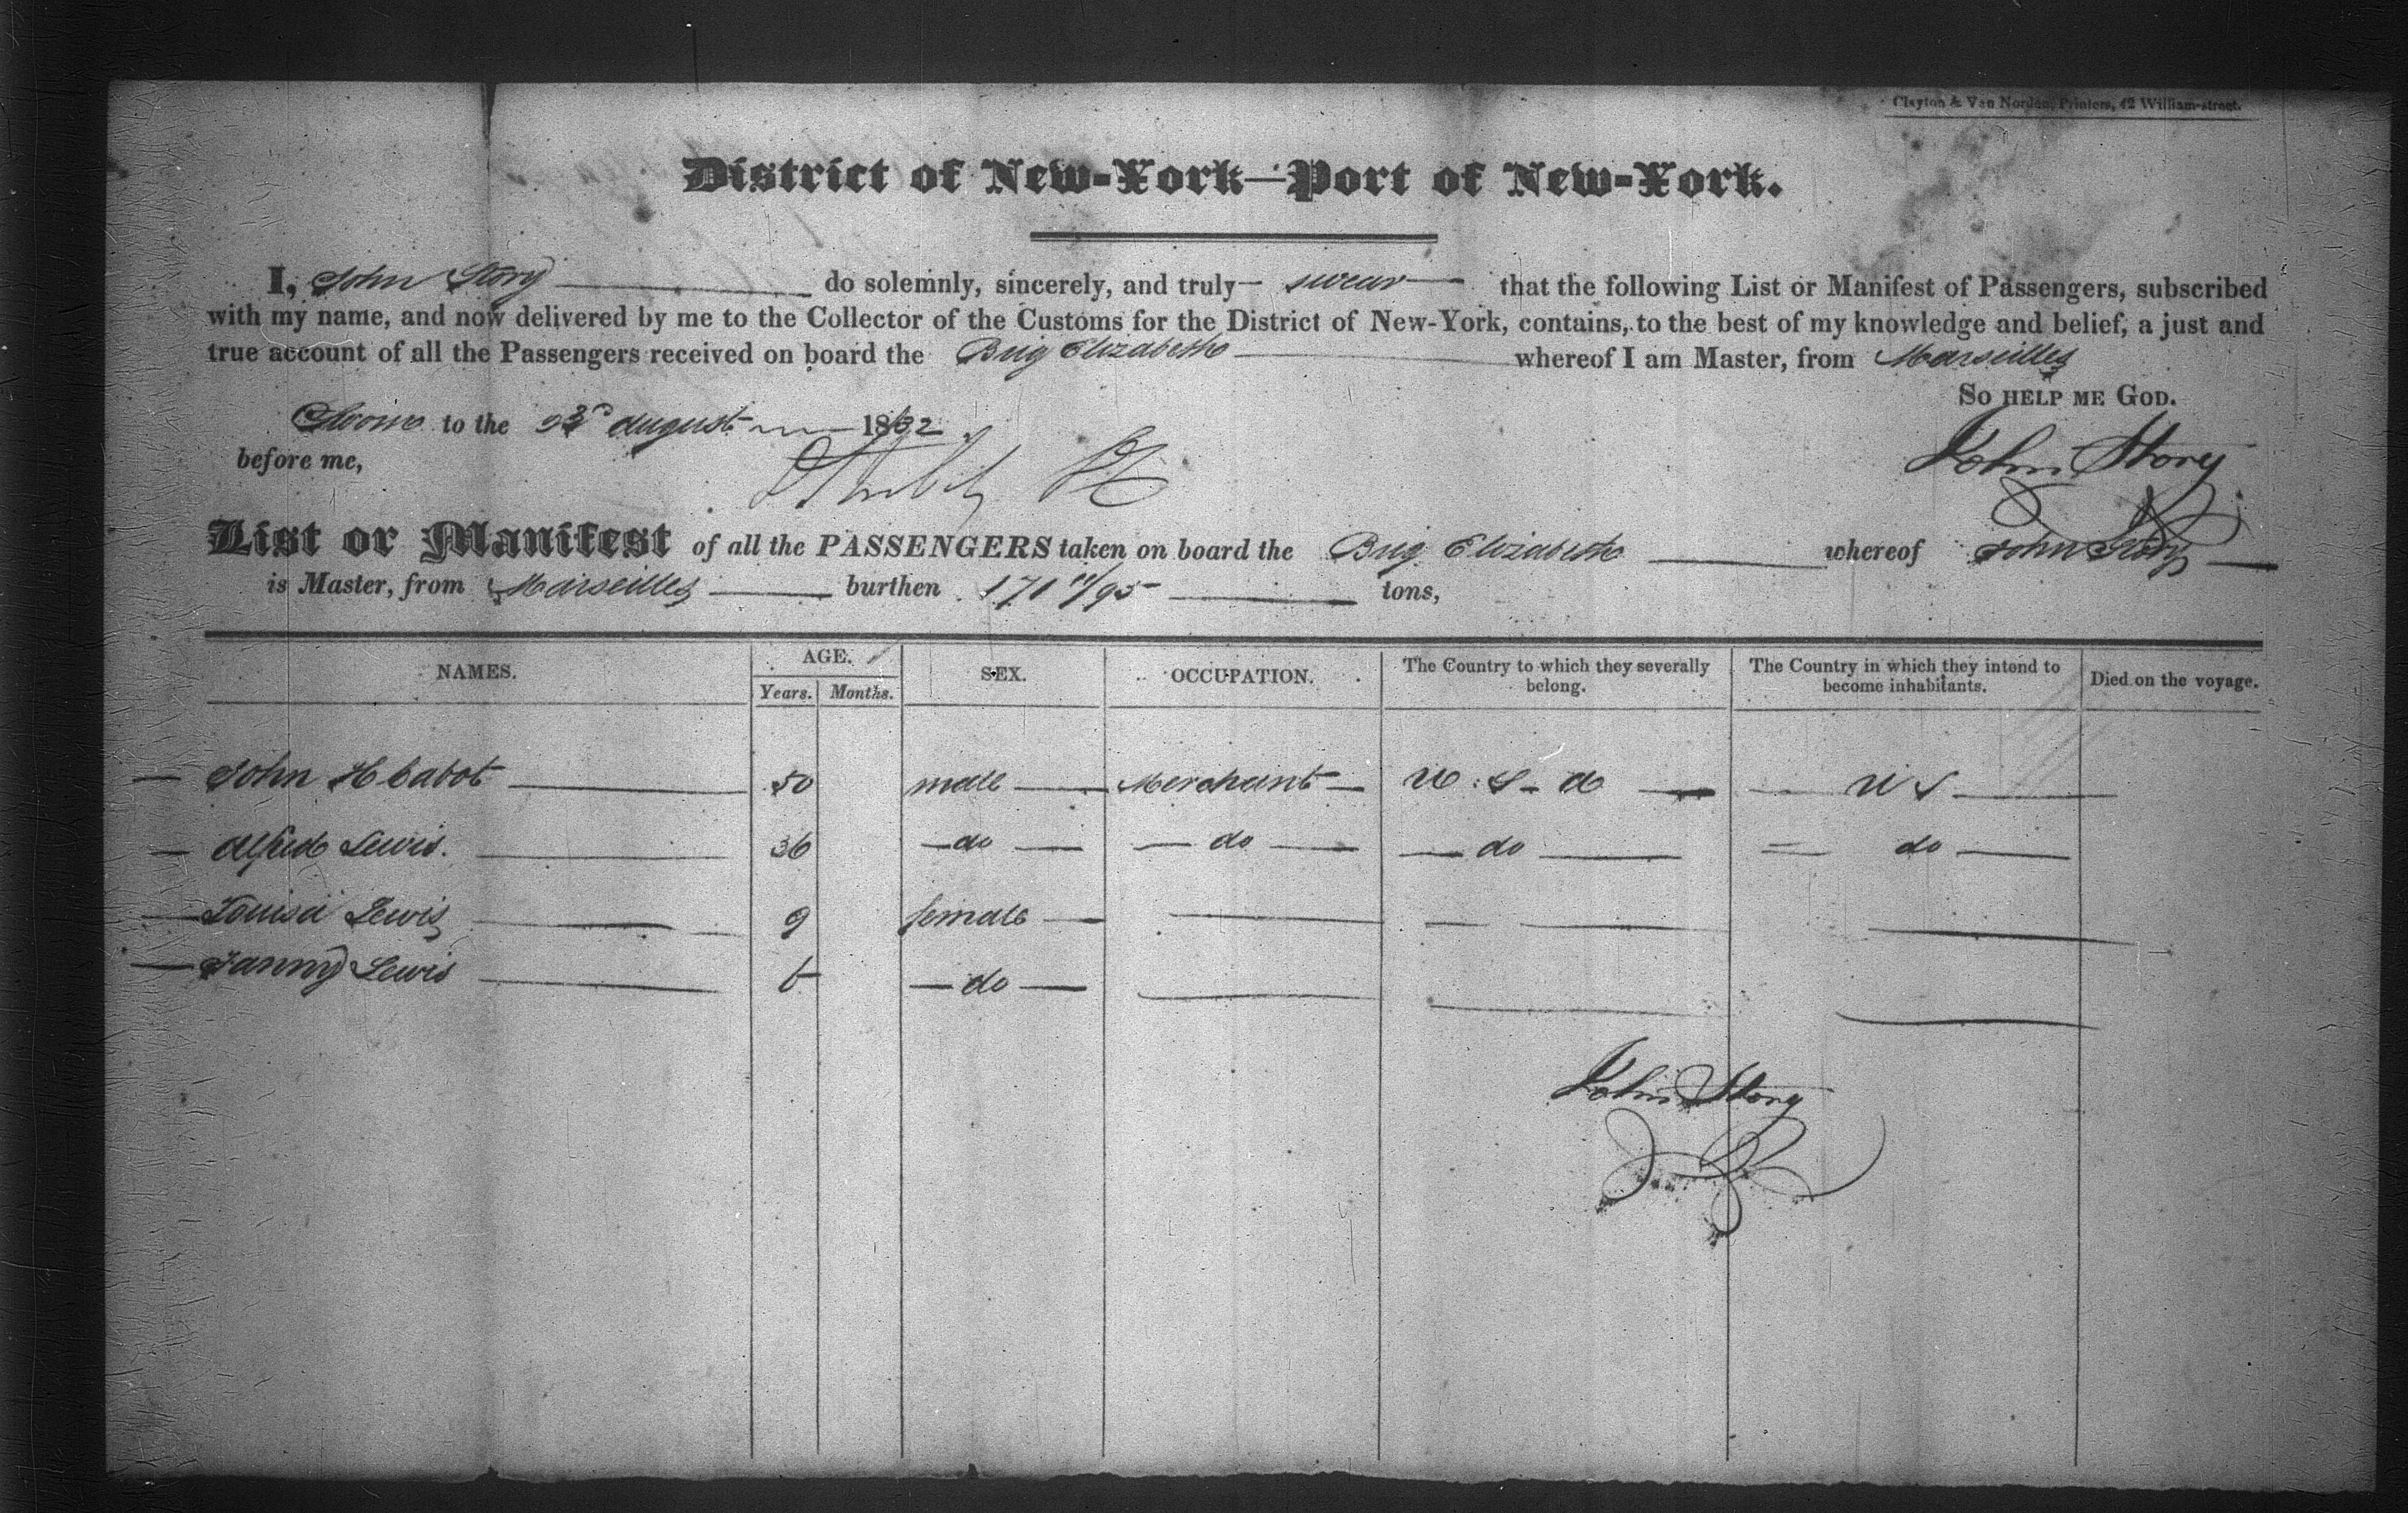 Clayton & Van Norden, Printers, 42 William-street.
District of New-York—Port of New-York.
I, John Story do solemnly, sincerely, and truly swear that the following List or Manifest of Passengers, subscribed
with my name, and now delivered by me to the Collector of the Customs for the District of New-York, contains, to the best of my knowledge and belief, a just and
true account of all the Passengers received on board the Brig Elizabeth whereof I am Master, from Marseilles
So help me God.
Sworn to the 23d august 1832
before me,
John Story
List or Manifest of all the PASSENGERS taken on board the Brig Elizabeth whereof John Story
is Master, from Marseilles burthen 171 11/95 tons,
NAMES. AGE. SEX. OCCUPATION. The Country to which they severally belong. The Country in which they intend to become inhabitants. Died on the voyage.
Years. Months.
John H Cabot 50 male Merchant U. S. a U S
Alfred Lewis. 36 do do do do
Louisa Lewis 9 female
Fanny Lewis do
John Story